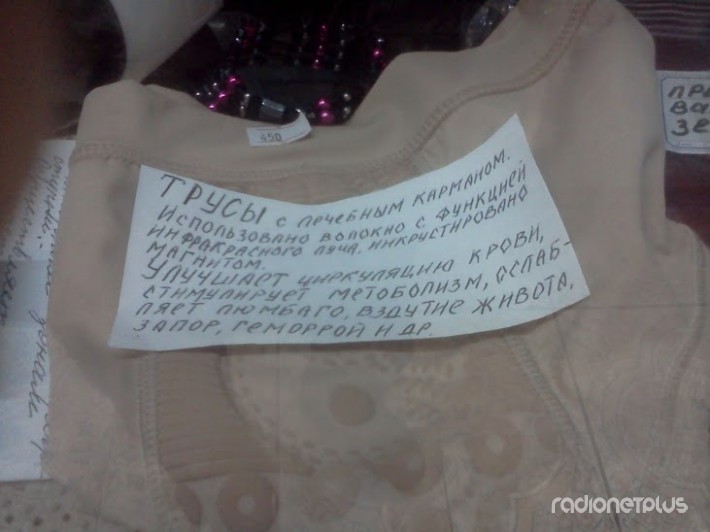 450
ТРУСЫ с лечебным карманом.
Использовано волокно с функцией
инфракрасного луча. инкрустировано
магнитом.
Улучшает циркуляцию крови,
стимулирует метоболизм, ослаб-
ляет люмбаго, вздутие живота,
запор, геморрой и др.
ПРИ
ВА
ЗЕ
radionetplus